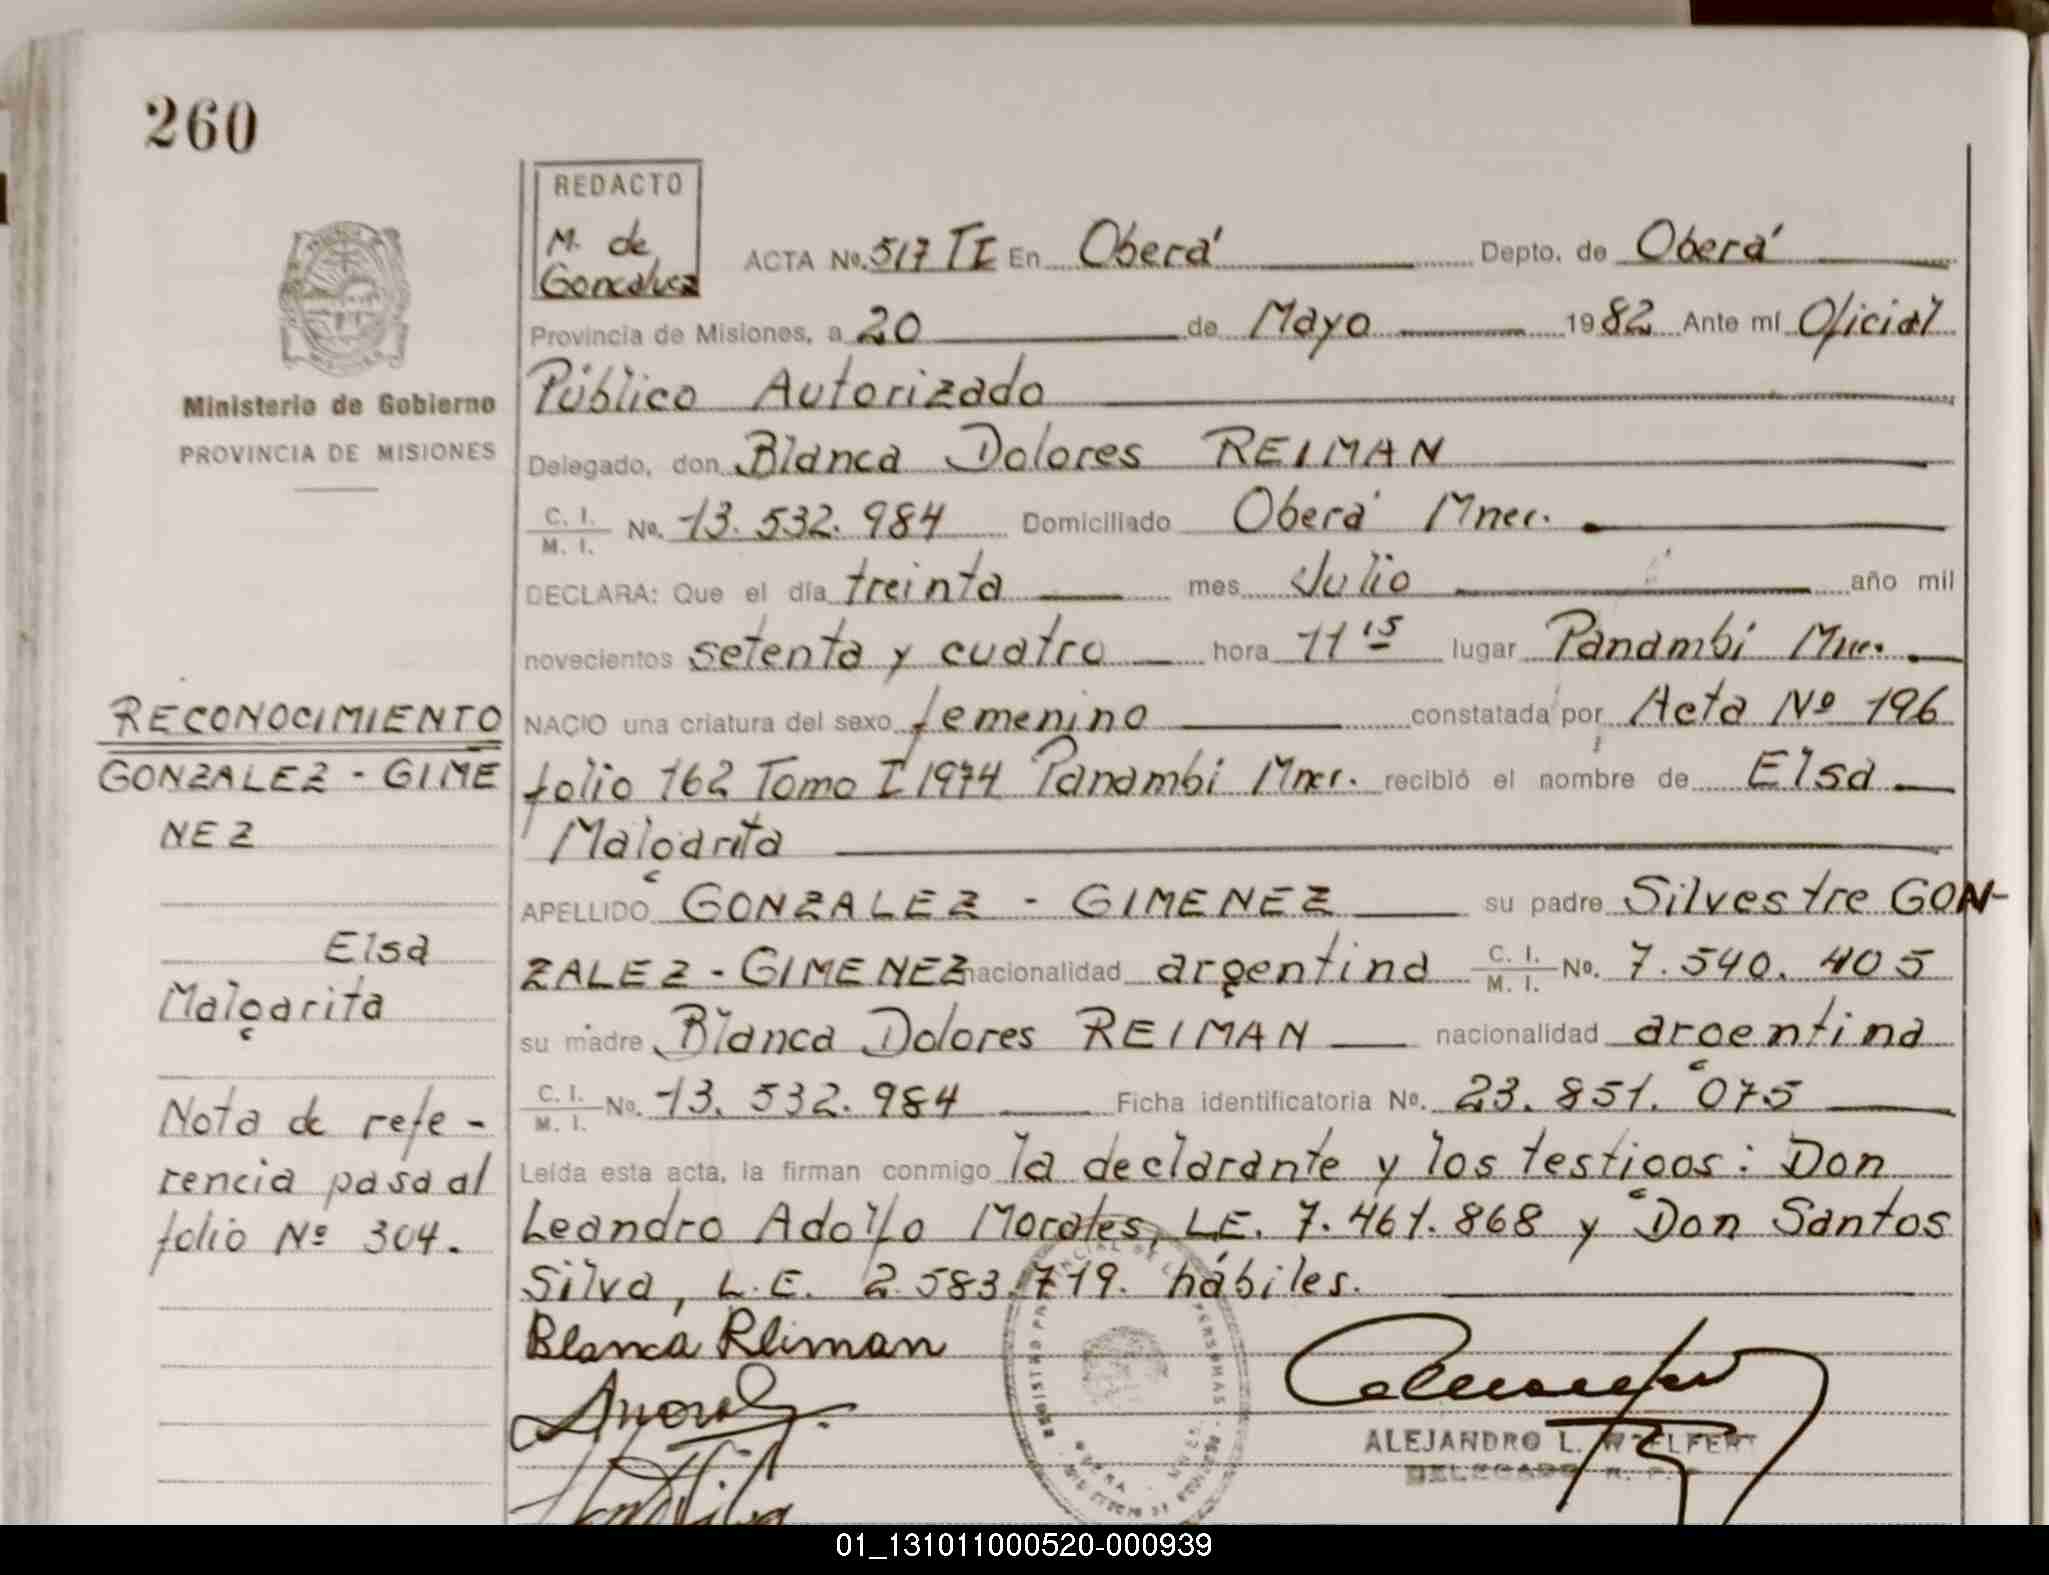 260
REDACTO
M. de
Goncalvez
ACTA No. 517 TI En Oberá Depto. de Oberá
Provincia de Misiones, a 20 de Mayo 1982 Ante mí Oficial
Público Autorizado
Ministerio de Gobierno
PROVINCIA DE MISIONES
Delegado, don Blanca Dolores REIMAN
C. I.
M. I. No. 13.532.984 Domiciliado Oberá Mnes.
DECLARA: Que el día treinta mes Julio año mil
novecientos setenta y cuatro hora 11 15 lugar Panambí Mnes.
NACIO una criatura del sexo femenino constatada por Acta Nº 196
folio 162 Tomo I 1974 Panambí Mnes. recibió el nombre de Elsa
Malgarita
APELLIDO GONZALEZ - GIMENEZ su padre Silvestre GON-
ZALEZ - GIMENEZ nacionalidad argentina C. I.
M. I. No. 7.540.405
su madre Blanca Dolores REIMAN nacionalidad argentina
C. I.
M. I. No. 13.532.984 Ficha identificatoria No. 23.851.075
Leída esta acta, la firman conmigo la declarante y los testigos: Don
Leandro Adolfo Morales, L.E. 7.461.868 y Don Santos
Silva, L.E. 2.583.719. hábiles.
RECONOCIMIENTO
GONZALEZ - GIME
NEZ
Elsa
Malgarita
Nota de refe-
rencia pasa al
folio Nº 304.
Blanca Reiman
ALEJANDRO L.
DELEGADO
01_131011000520-000939